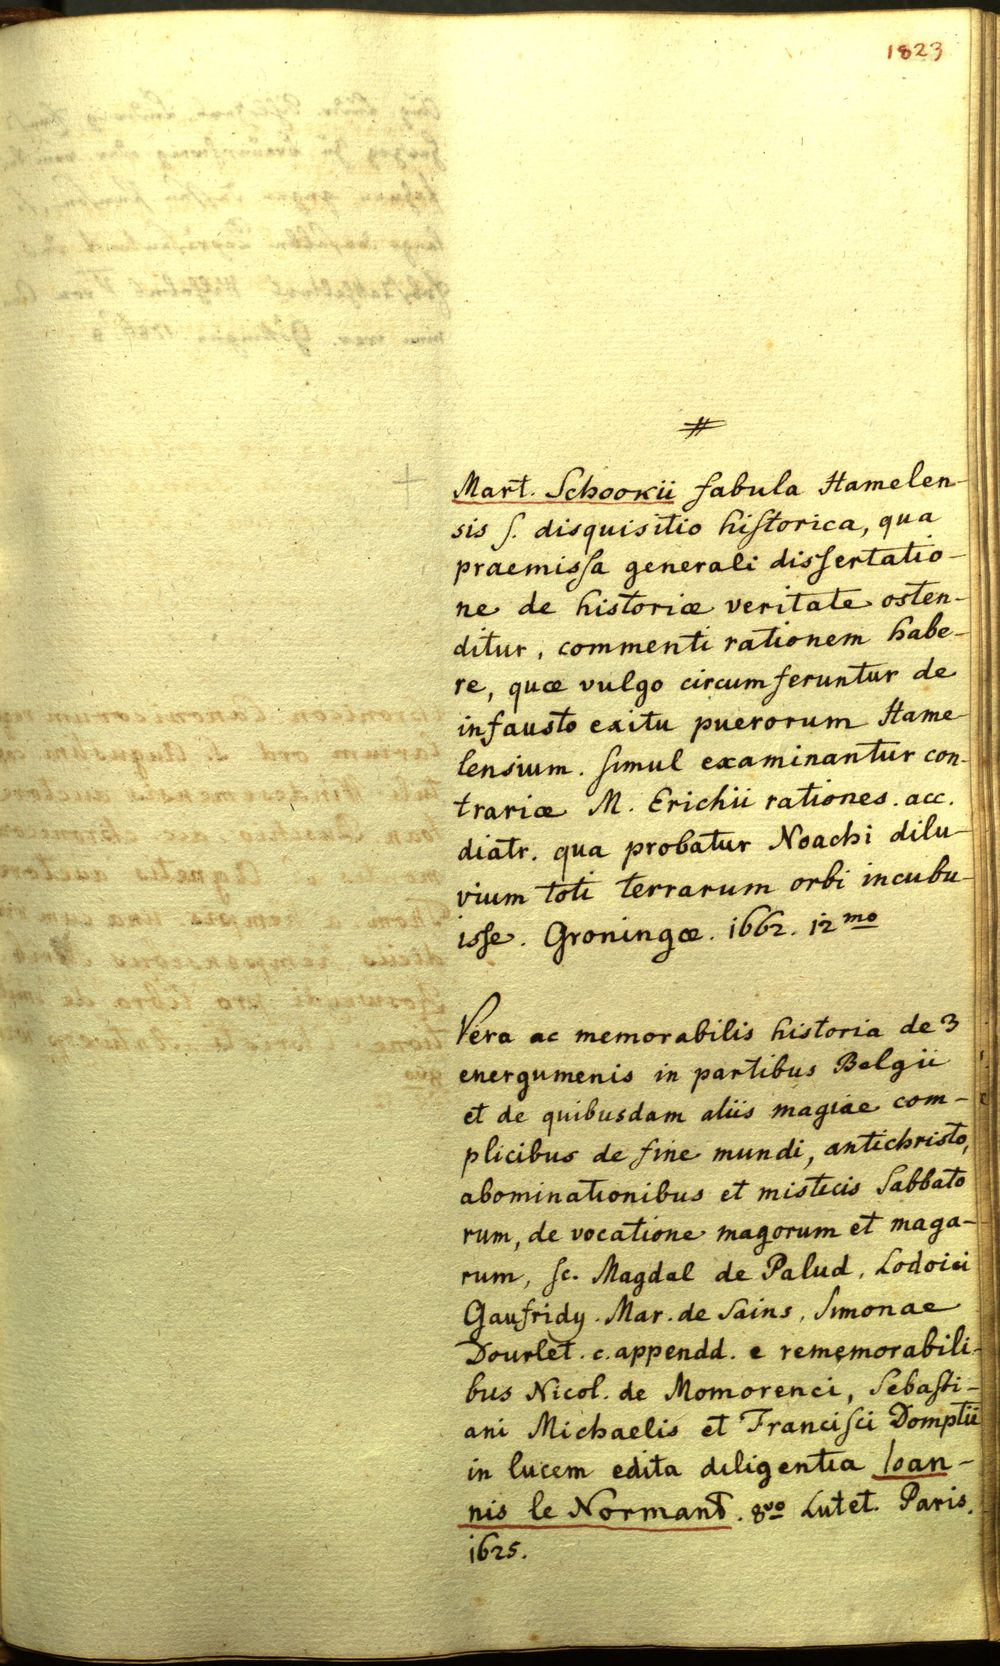 1823
Mart. Schookii fabula Hamelen-
sis ſ. disquisitio hiſtorica, qua
praemisſa generali disſertatio-
ne de historiæ veritate osten-
ditur, commenti rationem habe-
re, quæ vulgo circumferuntur de
infausto exitu puerorum Hame-
lensium. ſimul examinantur con-
trariæ M. Erichii rationes. acc.
diatr. qua probatur Noachi dilu-
vium toti terrarum orbi incubu-
isſe. Groningæ. 1662. 12mo
Vera ac memorabilis historia de 3
energumenis in partibus Belgii
et de quibusdam aliis magiae com-
plicibus de fine mundi, antichristo,
abominationibus et misticis Sabbato
rum, de vocatione magorum et maga-
rum, ſc. Magdal de Palud, Lodoici
Gaufridy. Mar. de Sains, Simonae
Dourlet. c. appendd. e rememorabili-
bus Nicol. de Momorenci, Sebaſti-
ani Michaelis et Franciſci Domptii
in lucem edita diligentia Ioan-
nis le Normant. 8vo Lutet. Paris.
1625.